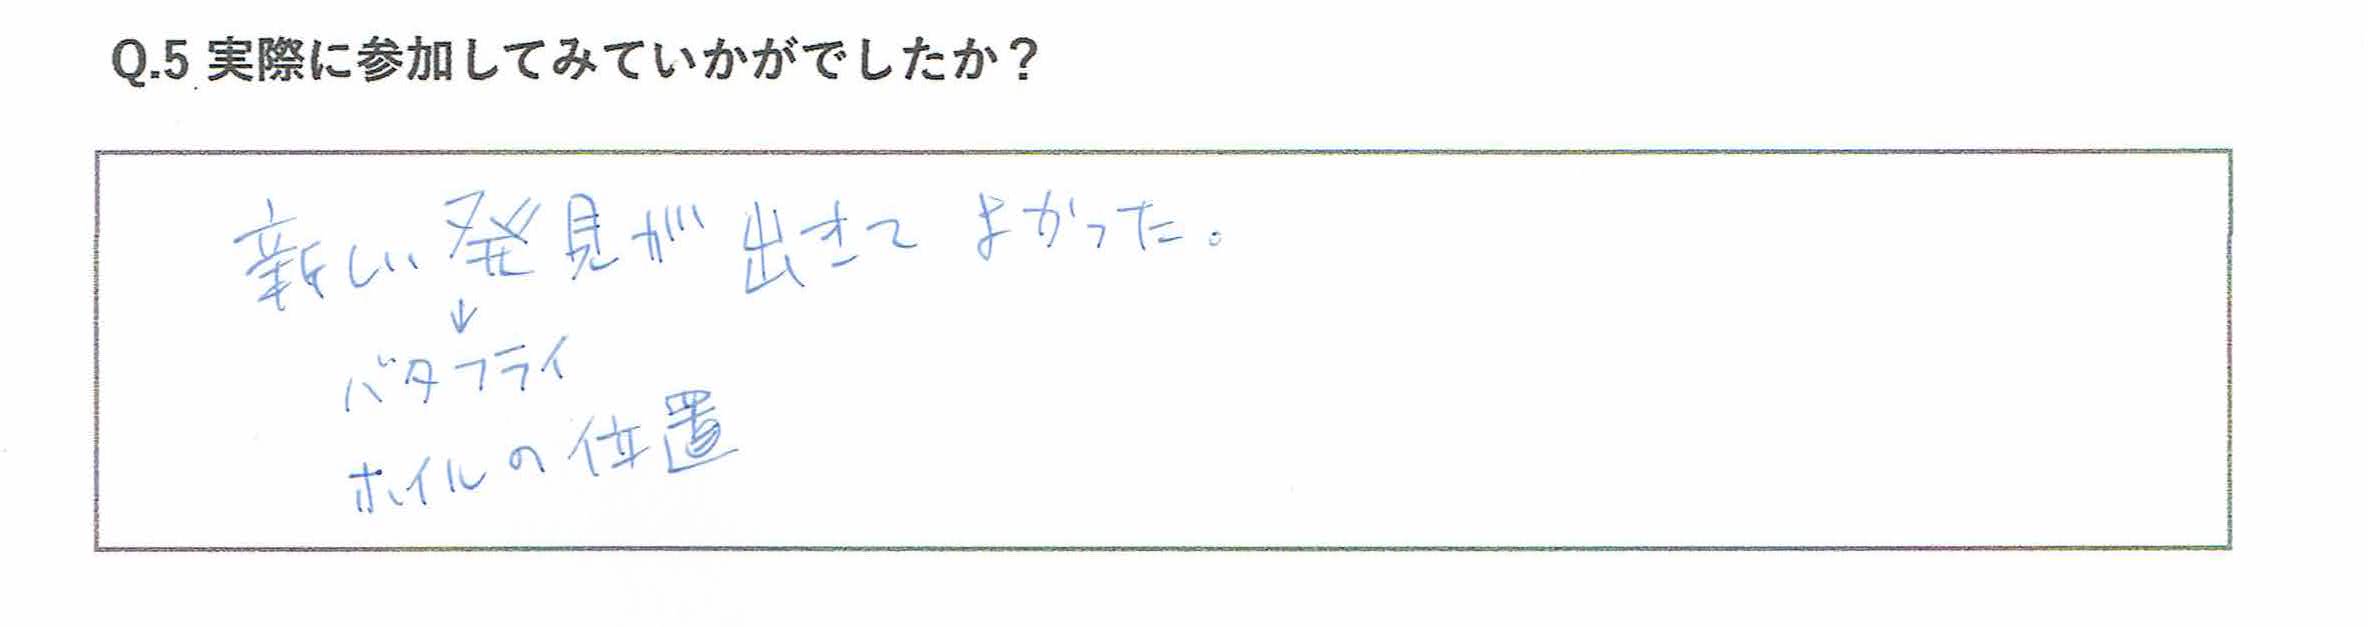 Q.5 実際に参加してみていかがでしたか？
新しい発見が出きてよかった。
↓
バタフライ
ホイルの位置